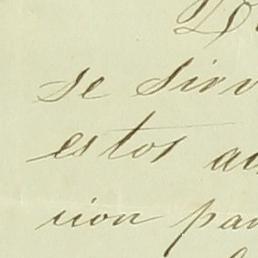 se sirv
estos au
cion par